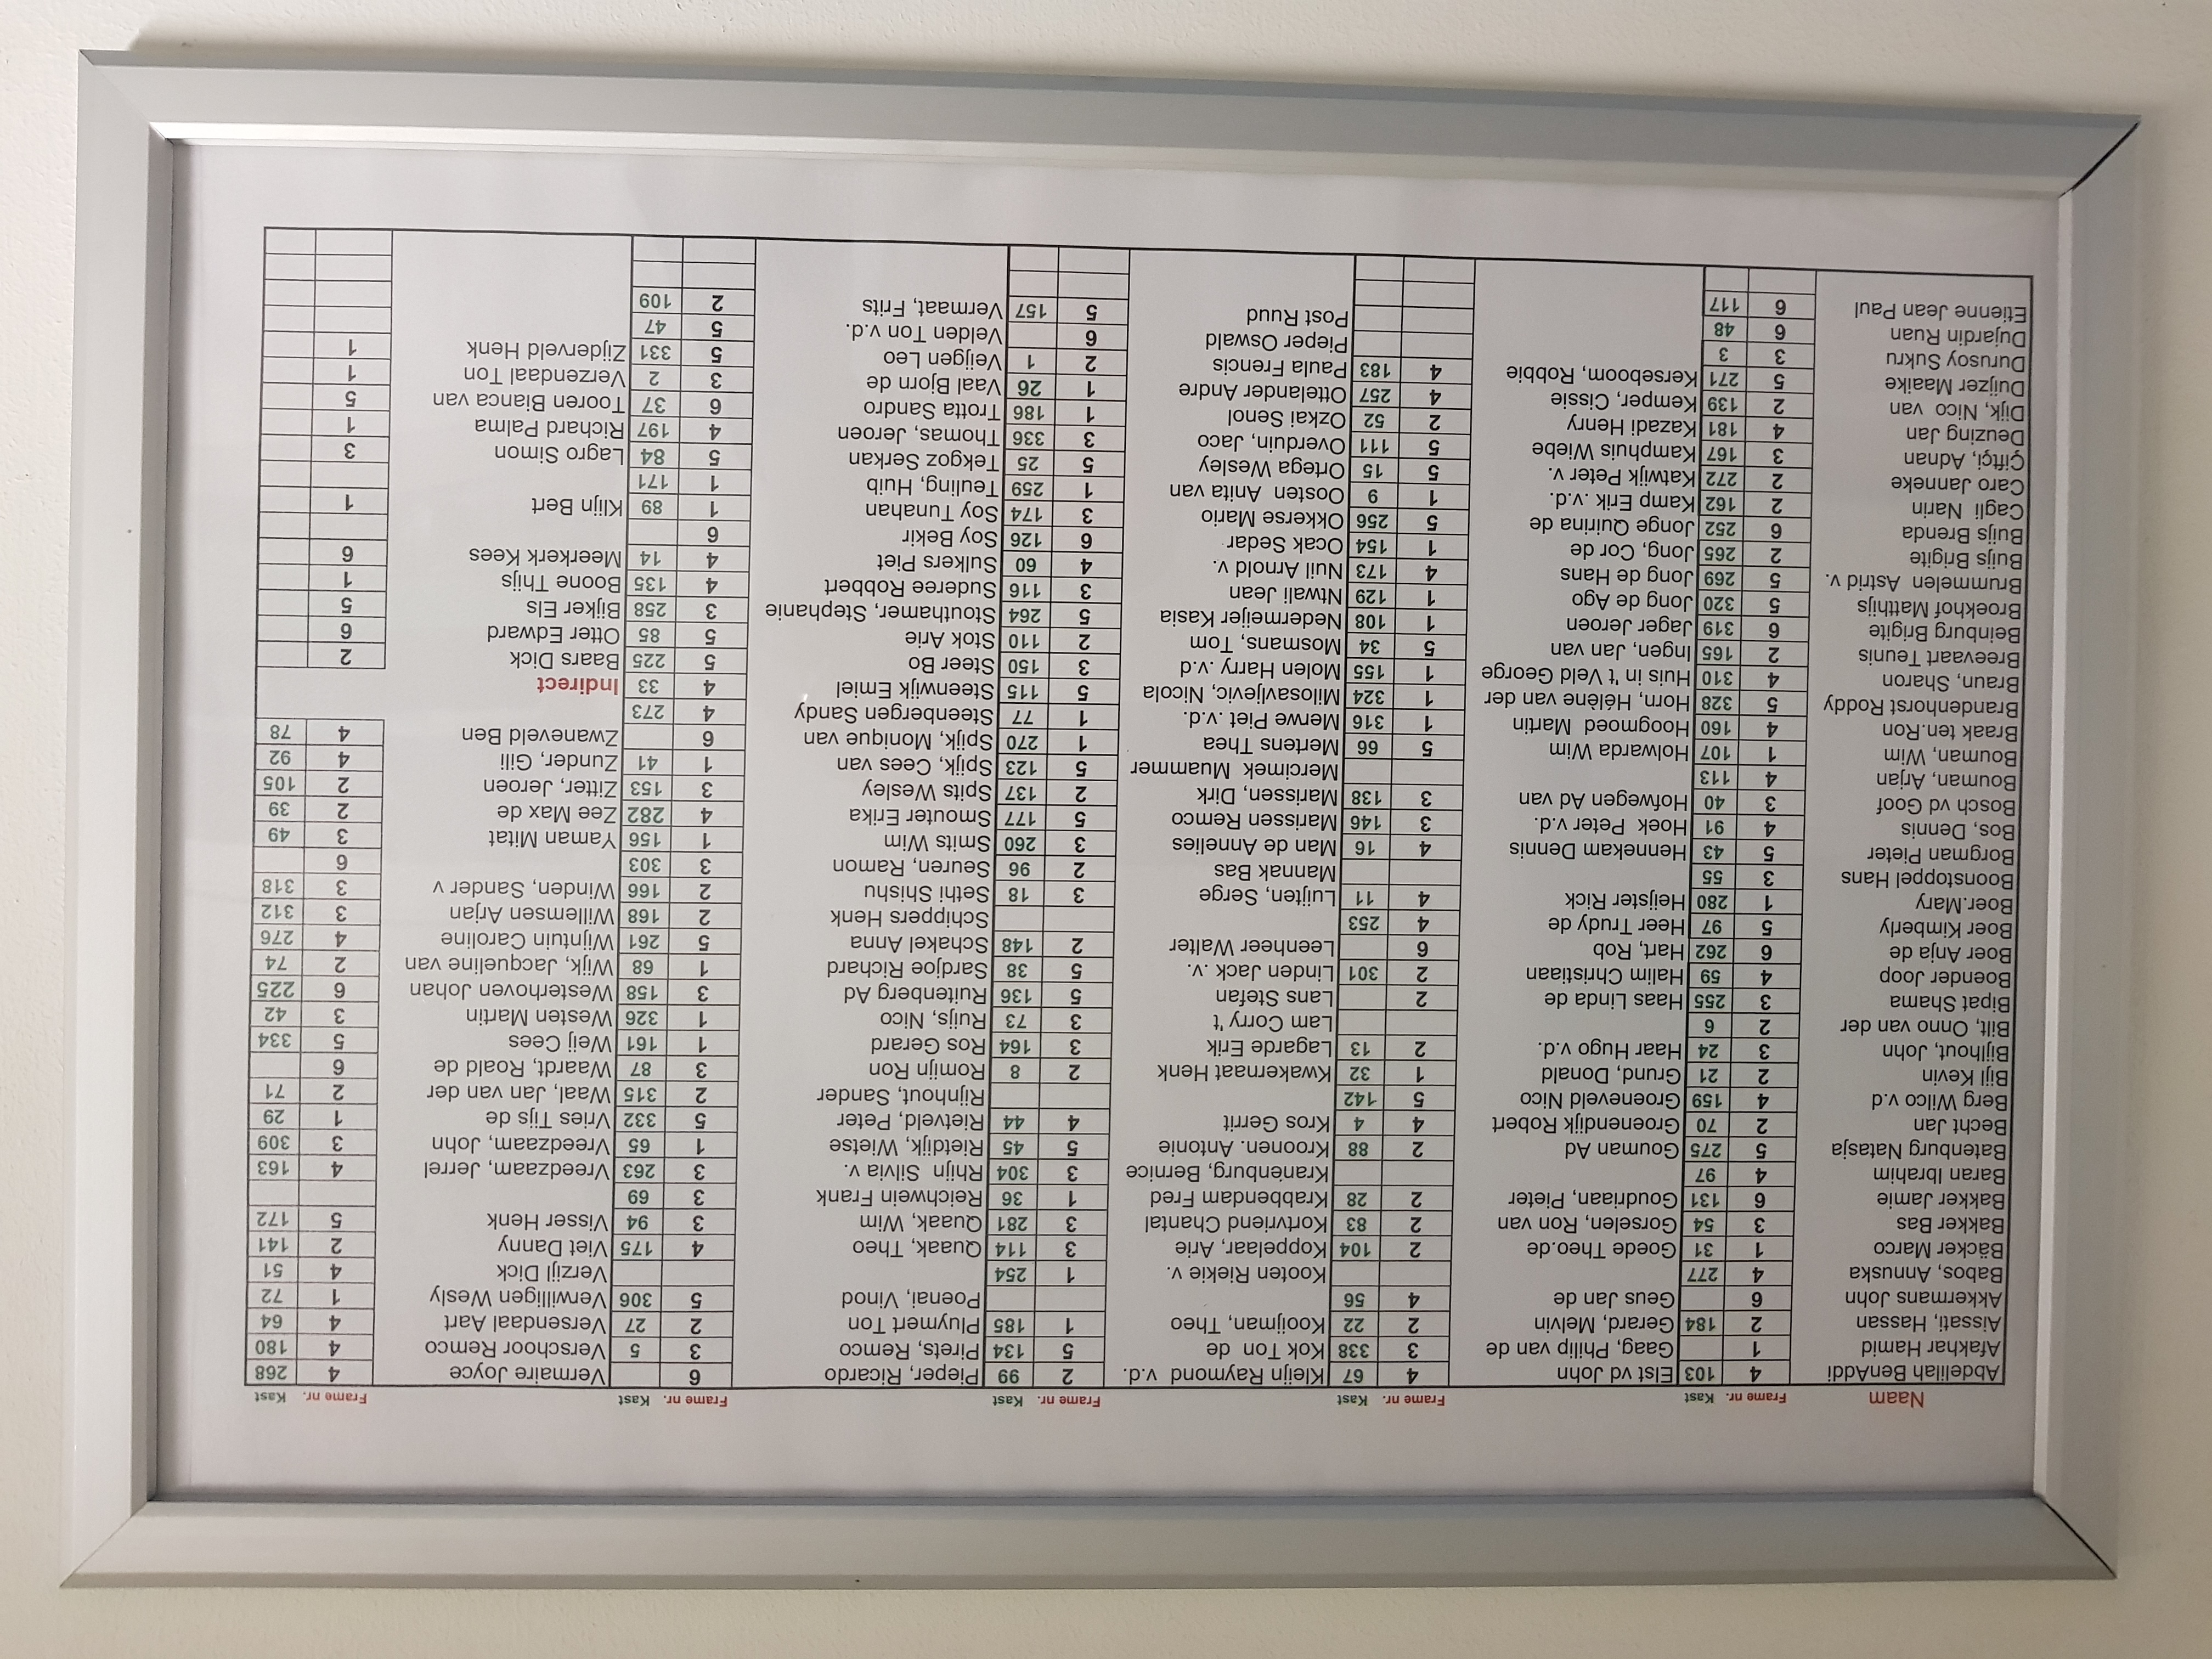 Naam Frame nr. Kast
Abdelilah BenAddi 4 103
Afakhar Hamid 1
Aissati, Hassan 2 184
Akkermans John 6
Babos, Annuska 4 277
Bäcker Marco 1 31
Bakker Bas 3 54
Bakker Jamie 6 131
Baran Ibrahim 4 97
Batenburg Natasja 5 275
Becht Jan 2 70
Berg Wilco v.d 4 159
Bijl Kevin 2 21
Bijlhout, John 3 24
Bilt, Onno van der 2 6
Bipat Shama 3 255
Boender Joop 4 59
Boer Anja de 6 262
Boer Kimberly 5 97
Boer.Mary 1 280
Boonstoppel Hans 3 55
Borgman Pieter 5 43
Bos, Dennis 4 91
Bosch vd Goof 3 40
Bouman, Arjan 4 113
Bouman, Wim 1 107
Braak ten.Ron 4 160
Brandenhorst Roddy 5 328
Braun, Sharon 4 310
Breevaart Teunis 2 165
Beinburg Brigite 6 319
Broekhof Matthijs 5 320
Brummelen Astrid v. 5 269
Buijs Brigite 2 265
Buijs Brenda 6 252
Cagli Narin 2 162
Caro Janneke 2 272
Çiftçi, Adnan 3 167
Deuzing Jan 4 181
Dijk, Nico van 2 139
Duijzer Maaike 5 271
Durusoy Sukru 3 3
Dujardin Ruan 6 48
Etienne Jean Paul 6 117
Frame nr. Kast
Elst vd John 4 67
Gaag, Philip van de 3 338
Gerard, Melvin 2 22
Geus Jan de 4 56
Goede Theo.de 2 104
Gorselen, Ron van 2 83
Goudriaan, Pieter 2 28
Gouman Ad 2 88
Groenendijk Robert 4 4
Groeneveld Nico 5 142
Grund, Donald 1 32
Haar Hugo v.d. 2 13
Haas Linda de 2
Halim Christiaan 2 301
Hart, Rob 6
Heer Trudy de 4 253
Heijster Rick 4 11
Hennekam Dennis 4 16
Hoek Peter v.d. 3 146
Hofwegen Ad van 3 138
Holwarda Wim 5 66
Hoogmoed Martin 1 316
Horn, Hélène van der 1 324
Huis in 't Veld George 1 155
Ingen, Jan van 5 34
Jager Jeroen 1 108
Jong de Ago 1 129
Jong de Hans 4 173
Jong, Cor de 1 154
Jonge Quirina de 5 256
Kamp Erik .v.d. 1 9
Katwijk Peter v. 5 15
Kamphuis Wiebe 5 111
Kazadi Henry 2 52
Kemper, Cissie 4 257
Kerseboom, Robbie 4 183
Frame nr. Kast
Kleijn Raymond v.d. 2 99
Kok Ton de 5 134
Kooijman, Theo 1 185
Kooten Riekie v. 1 254
Koppelaar, Arie 3 114
Kortvriend Chantal 3 281
Krabbendam Fred 1 36
Kranenburg, Bernice 3 304
Kroonen. Antonie 5 45
Kros Gerrit 4 44
Kwakernaat Henk 2 8
Lagarde Erik 3 164
Lam Corry 't 3 73
Lans Stefan 5 136
Linden Jack .v. 5 38
Leenheer Walter 2 148
Luijten, Serge 3 18
Mannak Bas 2 96
Man de Annelies 3 260
Marissen Remco 5 177
Marissen, Dirk 2 137
Mercimek Muammer 5 123
Mertens Thea 1 270
Merwe Piet .v.d. 1 77
Milosavljevic, Nicola 5 115
Molen Harry .v.d 3 150
Mosmans, Tom 2 110
Nedermeijer Kasia 5 264
Ntwali Jean 3 116
Nuil Arnold v. 4 60
Ocak Sedar 6 126
Okkerse Mario 3 174
Oosten Anita van 1 259
Ortega Wesley 5 25
Overduin, Jaco 3 336
Ozkai Senol 1 186
Ottelander Andre 1 26
Paula Frencis 2 1
Pieper Oswald 6
Post Ruud 5 157
Frame nr. Kast
Pieper, Ricardo 6
Pirets, Remco 3 5
Pluymert Ton 2 27
Poenai, Vinod 5 306
Quaak, Theo 4 175
Quaak, Wim 3 94
Reichwein Frank 3 69
Rhijn Silvia v. 3 263
Rietdijk, Wietse 1 65
Rietveld, Peter 5 332
Rijnhout, Sander 2 315
Romijn Ron 3 87
Ros Gerard 1 161
Ruijs, Nico 1 326
Ruitenberg Ad 3 158
Sardjoe Richard 1 68
Schakel Anna 5 261
Schippers Henk 2 168
Sethi Shishu 2 166
Seuren, Ramon 3 303
Smits Wim 1 156
Smouter Erika 4 282
Spits Wesley 3 153
Spijk, Cees van 1 41
Spijk, Monique van 6
Steenbergen Sandy 4 273
Steenwijk Emiel 4 33
Steer Bo 5 225
Stok Arie 5 85
Stouthamer, Stephanie 3 258
Suderee Robbert 4 135
Sulkers Piet 4 14
Soy Bekir 6
Soy Tunahan 1 89
Teuling, Huib 1 171
Tekgoz Serkan 5 84
Thomas, Jeroen 4 197
Trotta Sandro 6 37
Vaal Bjorn de 3 2
Veijgen Leo 5 331
Velden Ton v.d. 5 47
Vermaat, Frits 2 109
Frame nr. Kast
Vermaire Joyce 4 268
Verschoor Remco 4 180
Versendaal Aart 4 64
Verwilligen Wesly 1 72
Verzijl Dick 4 51
Viet Danny 2 141
Visser Henk 5 172
Vreedzaam, Jerrel 4 163
Vreedzaam, John 3 309
Vries Tijs de 1 29
Waal, Jan van der 2 71
Waardt, Roald de 6
Weij Cees 5 334
Westen Martin 3 42
Westerhoven Johan 6 225
Wijk, Jacqueline van 2 74
Wijntuin Caroline 4 276
Willemsen Arjan 3 312
Winden, Sander v 3 318
6
Yaman Mitat 3 49
Zee Max de 2 39
Zitter, Jeroen 2 105
Zunder, Gili 4 92
Zwaneveld Ben 4 78
Indirect
Baars Dick 2
Otter Edward 6
Bijker Els 5
Boone Thijs 1
Meerkerk Kees 6
Klijn Bert 1
Lagro Simon 3
Richard Palma 1
Tooren Bianca van 5
Verzendaal Ton 1
Zijderveld Henk 1